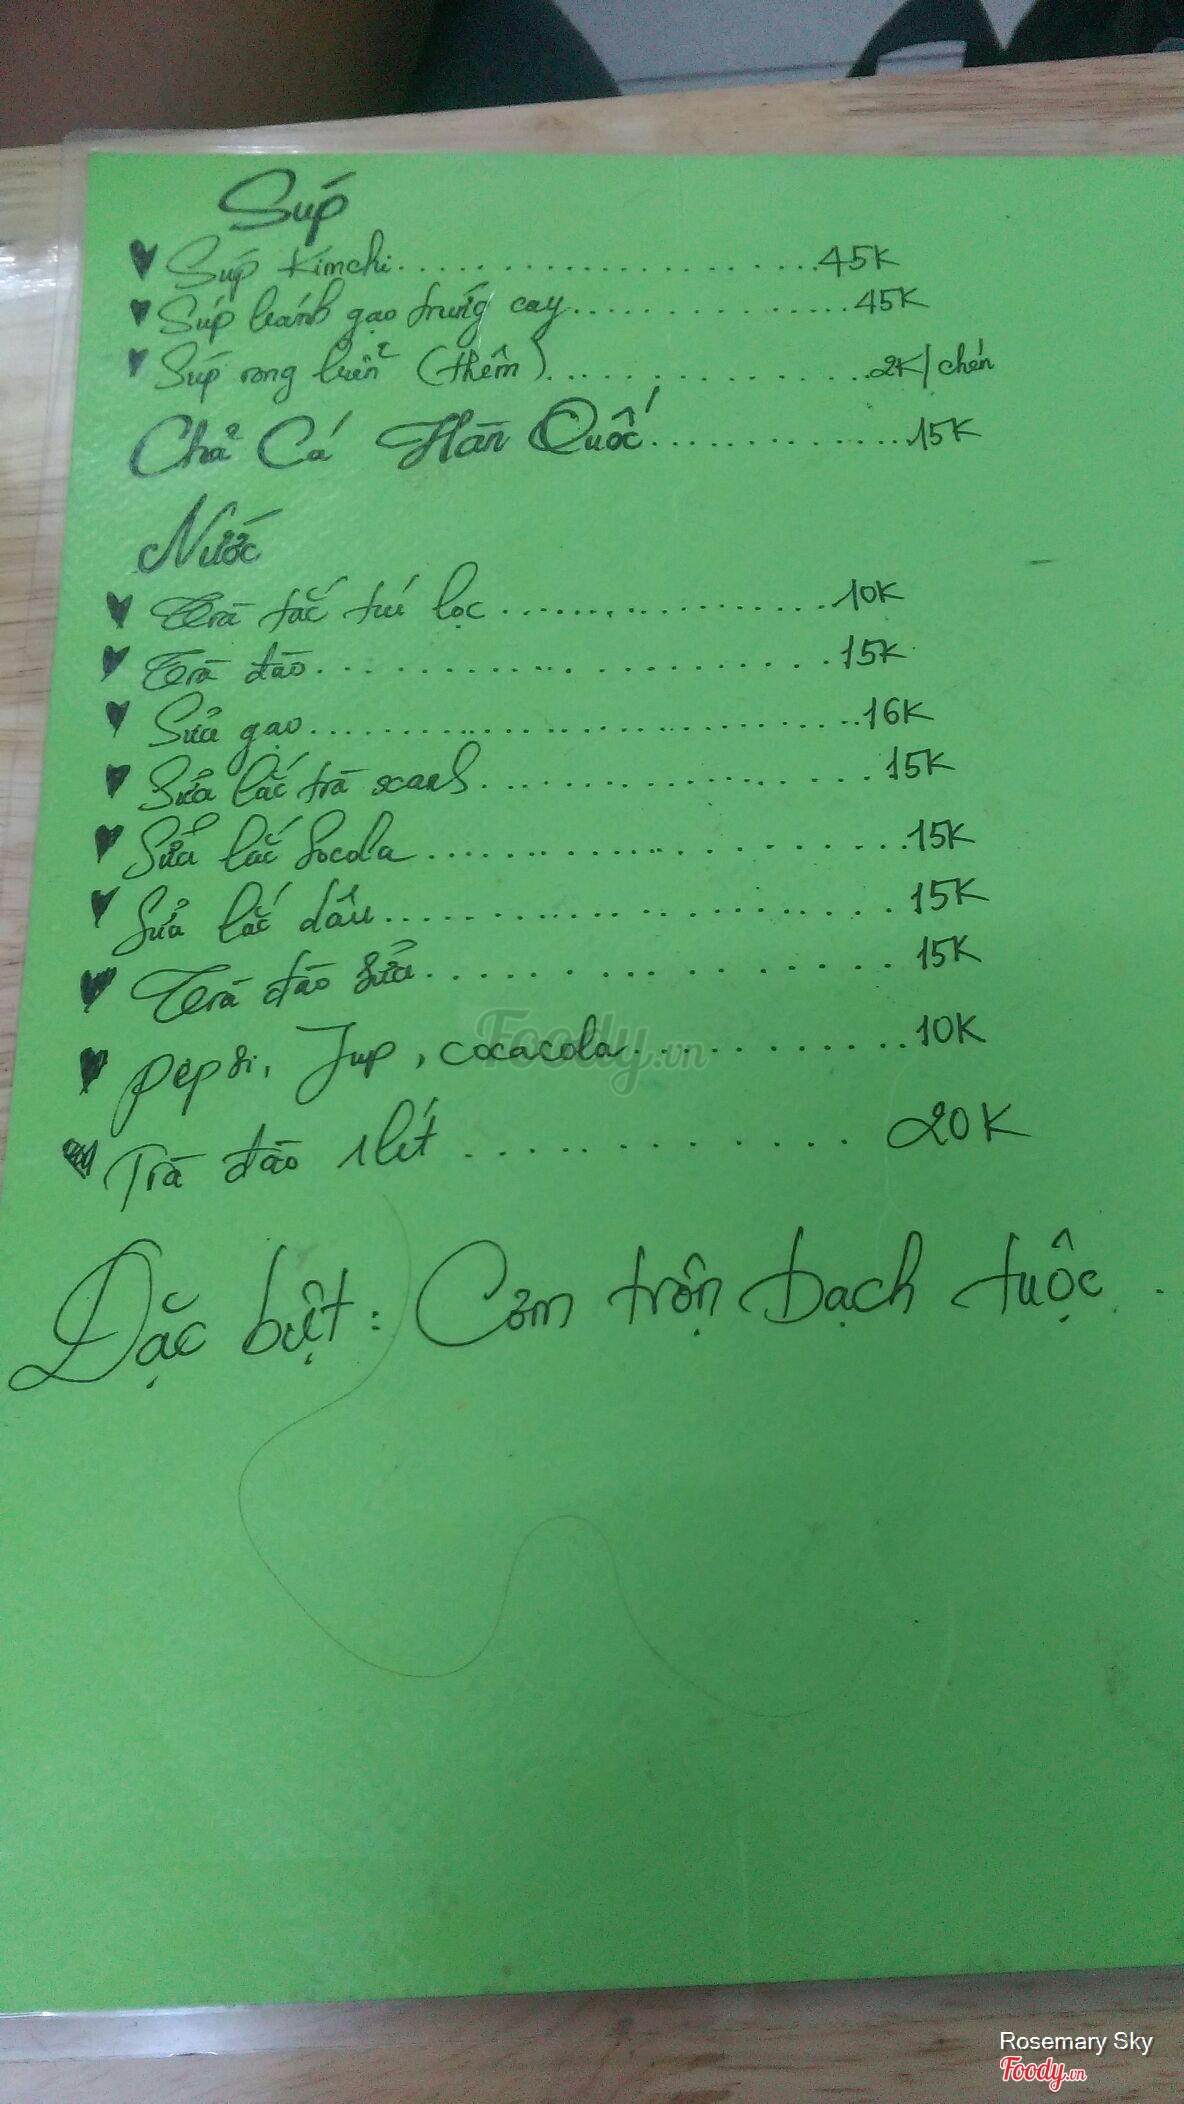 Súp
Súp Kimchi......................45K
Súp bánh gạo trứng cay...............45K
Súp rong biển (thêm)................2K/chén
Chả Cá Hàn Quốc..............15K
Nước
Trà tắc túi lọc..................10K
Trà đào........................15K
Sữa gạo........................16K
Sữa lắc trà xanh..................15K
Sữa lắc Socola....................15K
Sữa lắc dâu......................15K
Trà đào sữa.....................15K
pepsi, 7up, cocacola............10K
Trà đào 1 lít..............20K
Đặc biệt: Cơm trộn bạch tuộc.
Foody.vn
Rosemary Sky
Foody.vn